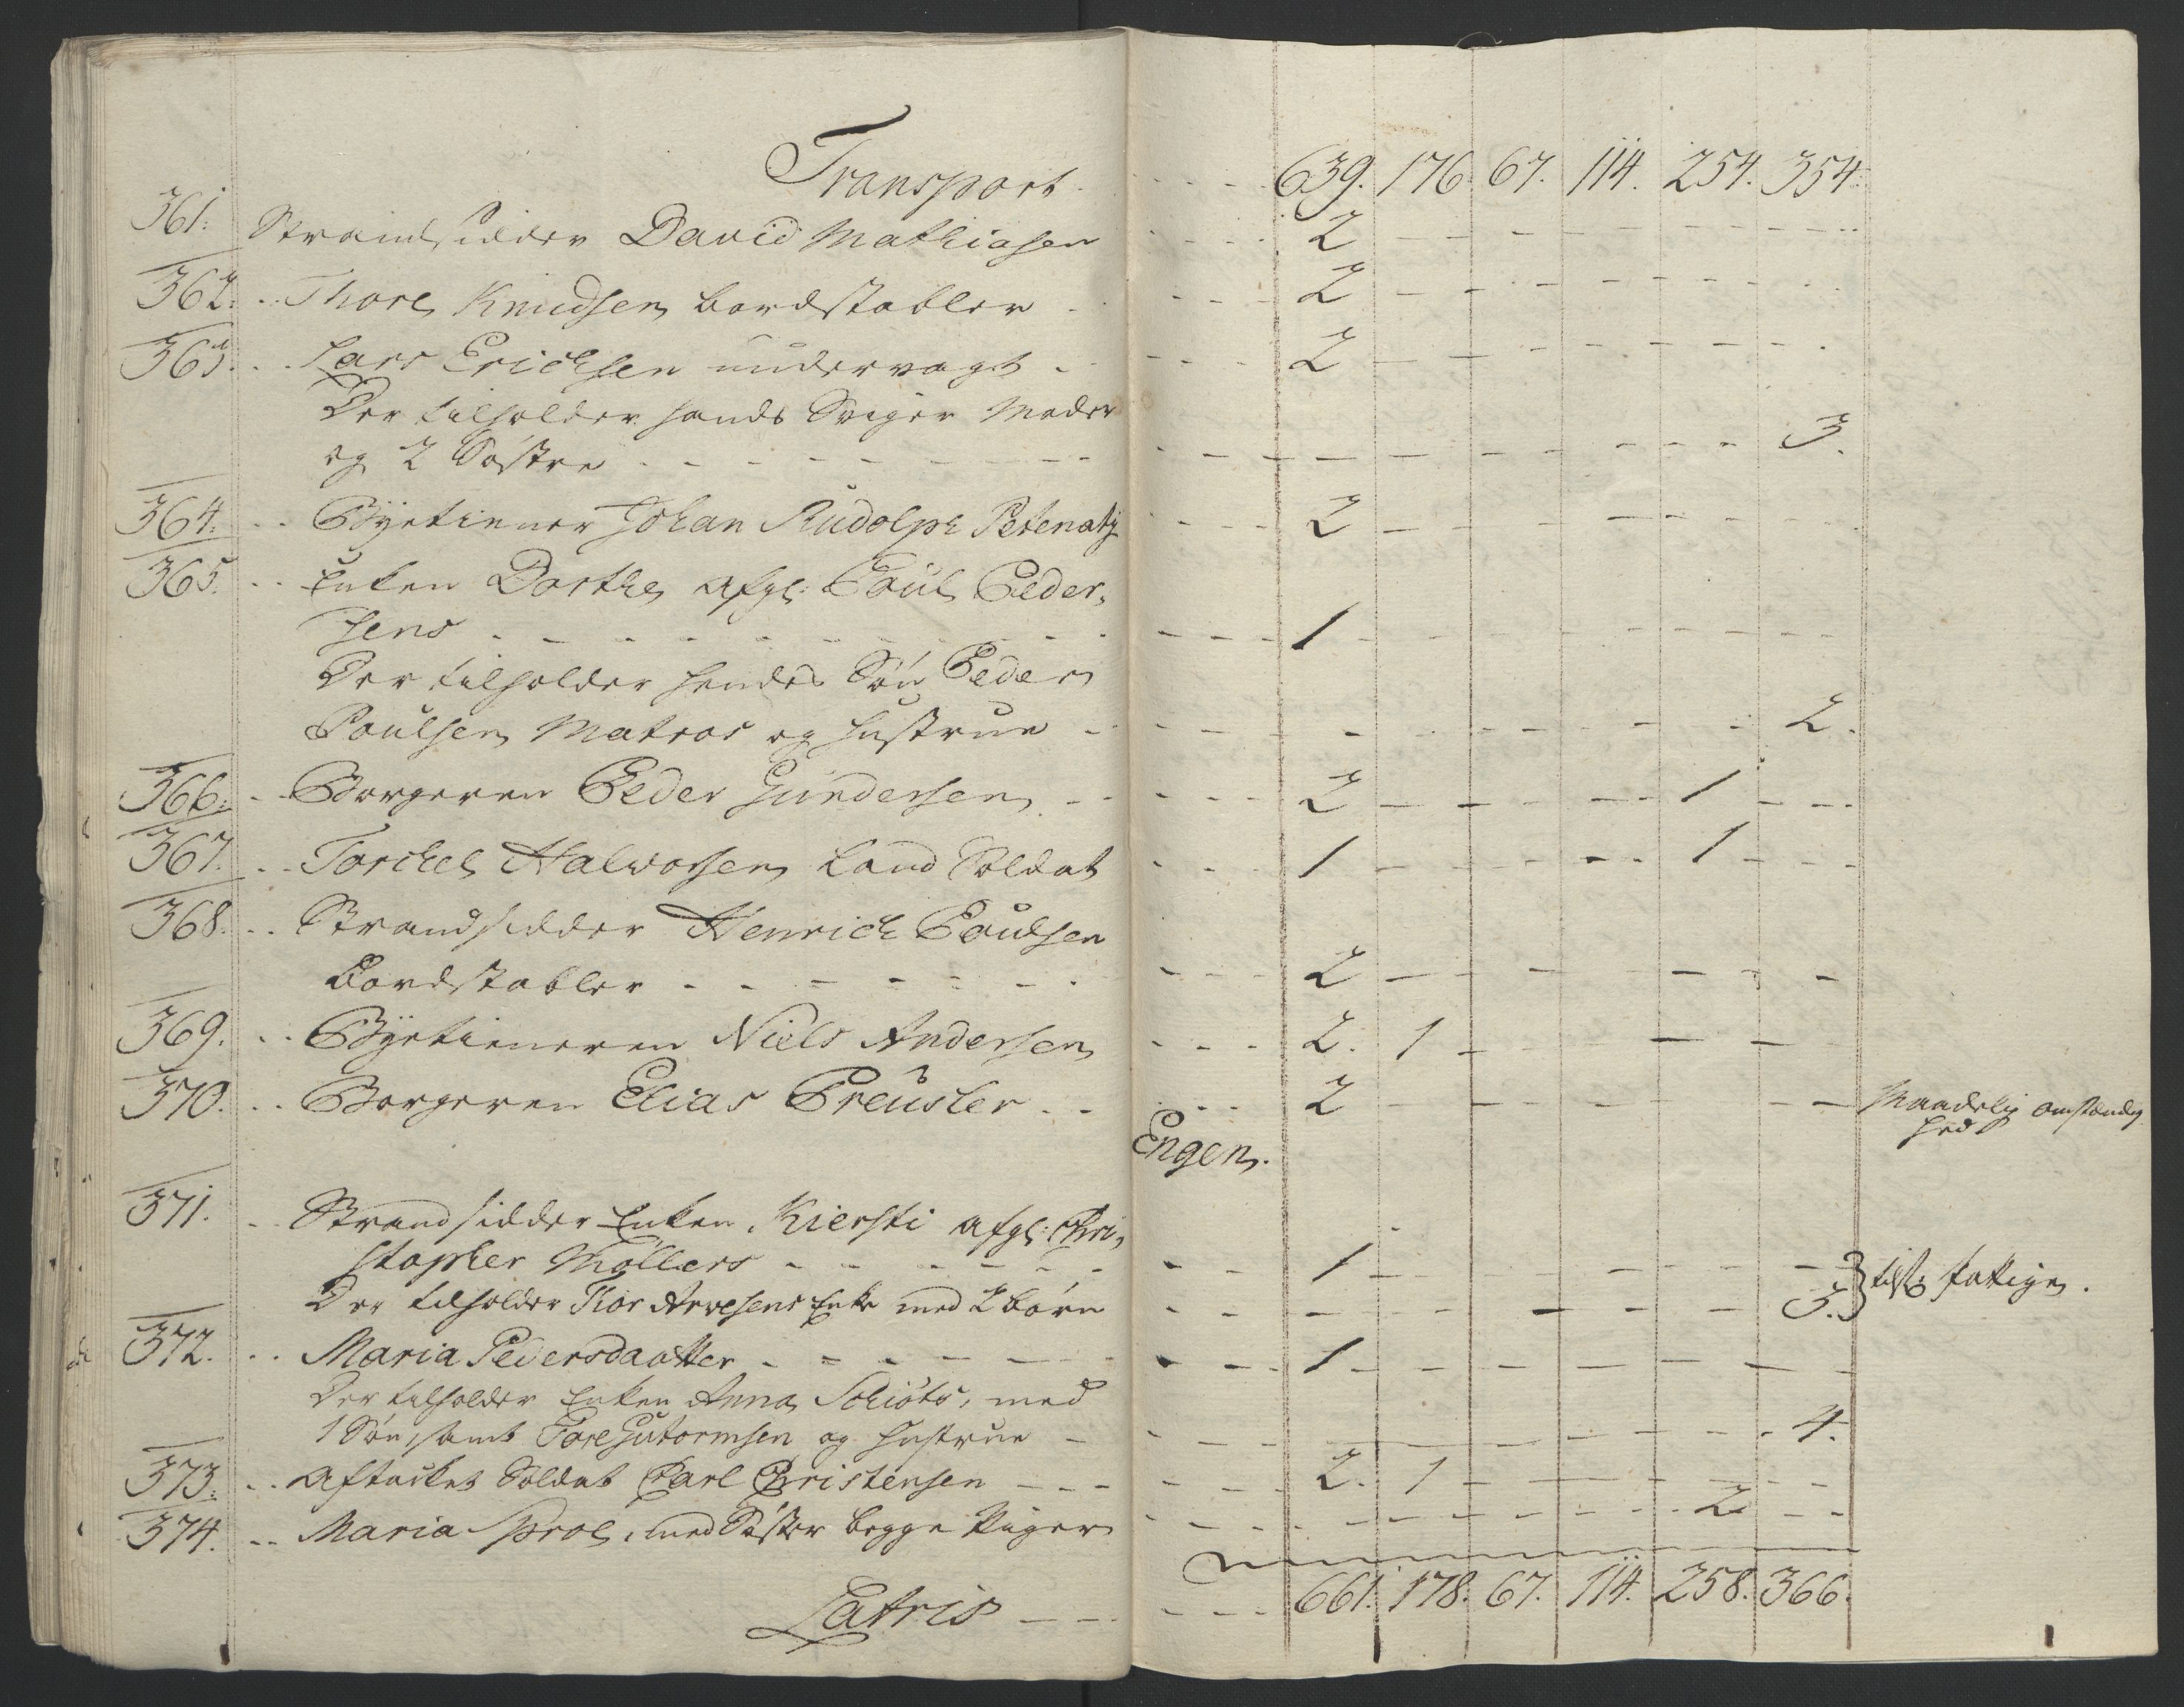 Transport - - - 639. 176. 67. 114. 254. 354.
361. Strandsidder David Mathiasen - - - 2 - - -
362. Thore Knudsen bordstabler - - - 2 - - -
363. Lars Erichsen undervagt - - - 2 - - -
Der tilholder hands Sviger Moder
og 2 Søstre - - - 3.
364. Byetienner Johan Rudolph Petenatj - - - 2 - - -
365. Enken Dorthe afgl: Poul Peder,
sens - - - 1 - - -
Der tilholder hendes Søn Peder
Poulsen Matros og hustrue - - - 2.
366. Borgeren Peder Gundersen - - - 2 - - - 1 - - -
367. Torchel Halvorsen Land Soldat - - - 1 - - - 1 - - -
368. Strandsidder Henrich Poulsen
Bordstabler - - - 2 - - -
369. Byetieneren Niels Andersen - - - 2. 1 - - -
370. Borgeren Elias Preusler - - - 2 - - - Maadelig omstændig
hed
Engen.
371. Strandsidder Enken Kiersti afgl: Chri,
stopher Møllers - - - 1 - - -
Der tilholder Thor Arvesens Enke med 2 børn - - - 3. fattige.
372. Maria Pedersdaatter - - - 1 - - -
Der tilholder Enken Anna Schiøts, med
1 Søn, samt Tore Gutormsen og hustrue - - - 4.
373. Aftacket Soldat Carl Christensen - - - 2. 1 - - -
374. Maria Prol, med Søster begge Piger - - - 2 - -
Latris - - - 661. 178. 67. 114. 258. 366.